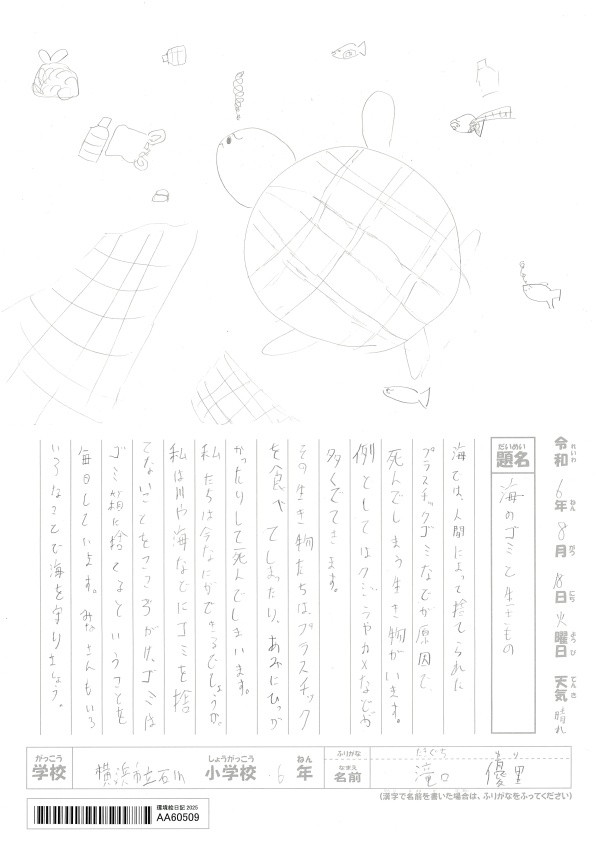 令和 6年 8月 18日 火曜日 天気 晴れ
れいわ ねん がつ にち ようび てんき
だいめい
題名 海のゴミと生きもの
海では、人間によって捨てられた
プラスチックゴミなどが原因で、
死んでしまう生き物がいます。
例としてはクジラやカメなどが
多くでてきます。
その生き物たちは、プラスチック
を食べてしまったり、あみにひっか
かったりして死んでしまいます。
私たちは今なにができるでしょうか。
私は川や海などにゴミを捨
てないことをこころがけ、ゴミは
ゴミ箱に捨てるということを
毎日しています。みなさんもいろ
いろなことで海を守りましょう。
がっこう しょうがっこう ねん
学校 横浜市立石川 小学校 6 年
ふりがな たきぐち
なまえ
名前 滝口 優里
(漢字で名前を書いた場合は、ふりがなをふってください)
環境絵日記 2025
AA60509